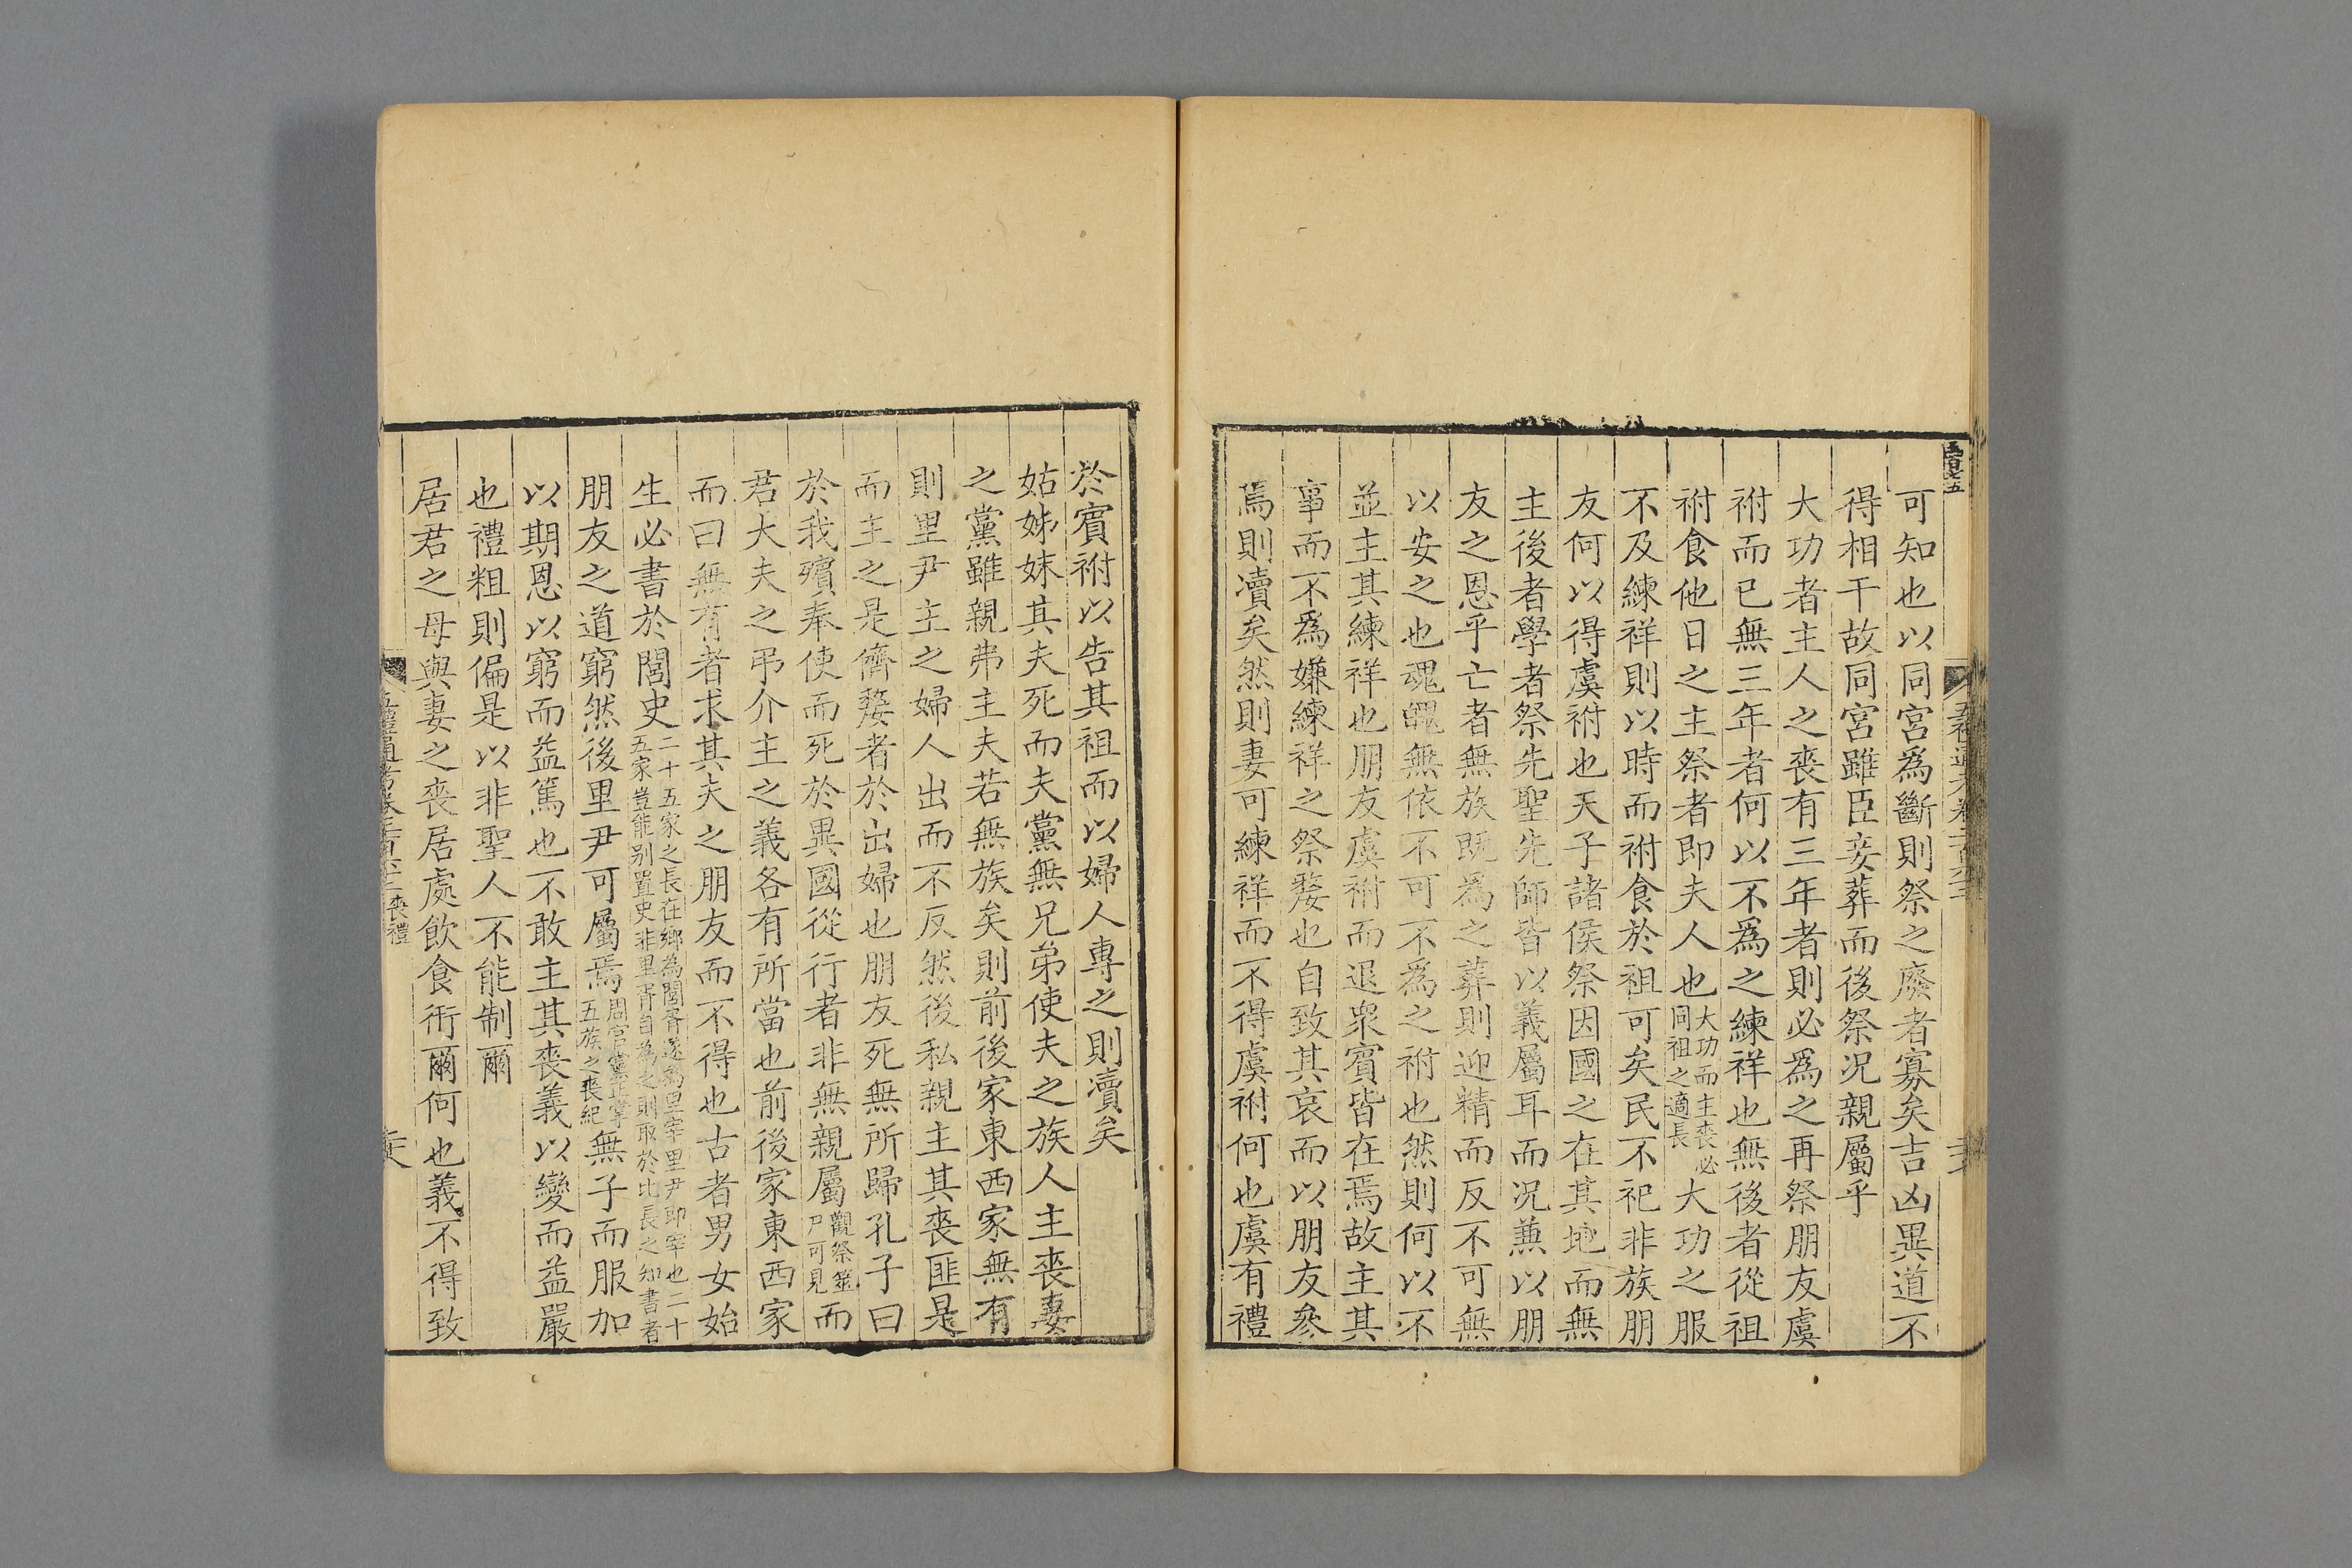 可知也以同宮爲斷則祭之廢者寡矣吉凶異道不
得相干故同宮雖臣妾葬而後祭况親屬乎
大功者主人之喪有三年者則必爲之再祭朋友虞
祔而已無三年者何以不爲之練祥也無後者從祖
祔食他日之主祭者即夫人也大功而主喪必同祖之適長大功之服
不及練祥則以時而祔食於祖可矣民不祀非族朋
友何以得虞祔也天子諸侯祭因國之在其地而無
主後者學者祭先聖先師皆以義屬耳而况兼以朋
友之恩乎亡者無族既爲之葬則迎精而反不可無
以安之也魂魄無依不可不爲之祔也然則何以不
並主其練祥也朋友虞祔而退衆賓皆在焉故主其
事而不爲嫌練祥之祭嫠也自致其哀而以朋友叅
焉則瀆矣然則妻可練祥而不得虞祔何也虞有禮
於賓祔以告其祖而以婦人專之則瀆矣
姑姊妹其夫死而夫黨無兄弟使夫之族人主喪妻
之黨雖親弗主夫若無族矣則前後家東西家無有
則里尹主之婦人出而不反然後私親主其喪匪是
而主之是儕嫠者於出婦也朋友死無所歸孔子曰
於我殯奉使而死於異國從行者非無親屬觀祭筮尸可見而
君大夫之弔介主之義各有所當也前後家東西家
而曰無有者求其夫之朋友而不得也古者男女始
生必書於閭史二十五家之長在鄉為閭胥遂為里宰里尹即宰也二十五家豈能别置史非里胥自為之則取於比長之知書者
朋友之道窮然後里尹可屬焉周官黨正掌五族之喪紀無子而服加
以期恩以窮而益篤也不敢主其喪義以變而益嚴
也禮粗則偏是以非聖人不能制爾
居君之母與妻之喪居處飲食衎爾何也義不得致
喪禮